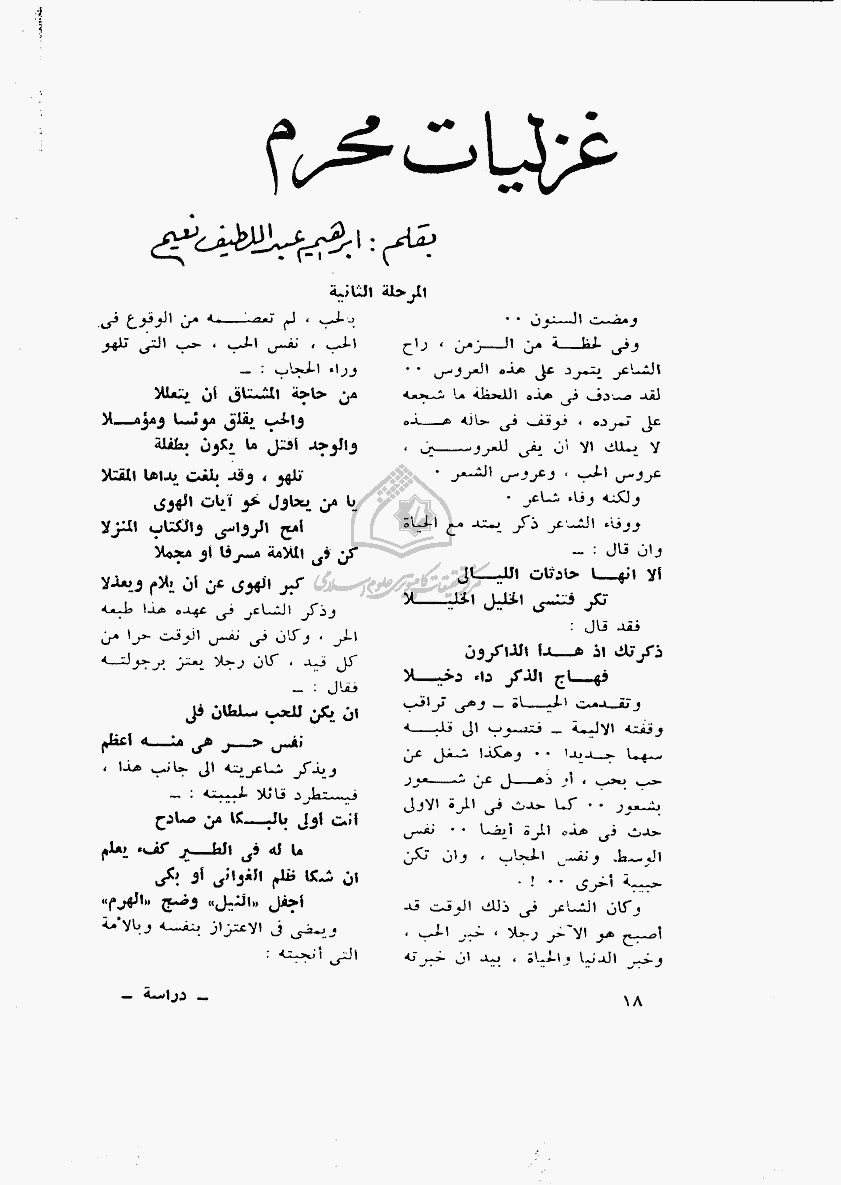 غزليات محرم
بقلم : ابراهيم عبد اللطيف نعيم
المرحلة الثانية
ومضت السنون ٠٠
وفى لحظة من الزمن ، راح
الشاعر يتمرد على هذه العروس ٠٠
لقد صادف فى هذه اللحظة ما شجعه
على تمرده ، فوقف فى حاله هذه
لا يملك الا أن يفى للعروسين ،
عروس الحب ، وعروس الشعر ٠
ولكنه وفاء شاعر ٠
ووفاء الشاعر ذكر يمتد مع الحياة
وان قال : ــ
ألا انها حادثات الليالى
تكر فتنسى الخليل الخليلا
فقد قال :
ذكرتك اذ هدأ الذاكرون
فهاج الذكر داء دخيلا
وتقدمت الحياة ــ وهى تراقب
وقفته الاليمة ــ فتصوب الى قلبه
سهما جديدا ٠٠ وهكذا شغل عن
حب بحب ، أو ذهل عن شعور
بشعور ٠٠ كما حدث فى المرة الاولى
حدث فى هذه المرة أيضا ٠٠ نفس
الوسط ونفس الحجاب ، وان تكن
حبيبة أخرى ٠٠ ! ٠
وكان الشاعر فى ذلك الوقت قد
أصبح هو الآخر رجلا ، خبر الحب ،
وخبر الدنيا والحياة ، بيد ان خبرته
بالحب ، لم تعصمه من الوقوع فى
الحب ، نفس الحب ، حب التى تلهو
وراء الحجاب : ــ
من حاجة المشتاق أن يتعللا
والحب يقلق موئسا ومؤملا
والوجد أقتل ما يكون بطفلة
تلهو ، وقد بلغت يداها المقتلا
يا من يحاول محو آيات الهوى
أمح الرواسى والكتاب المنزلا
كن فى الملامة مسرفا أو مجملا
كبر الهوى عن أن يلام ويعذلا
وذكر الشاعر فى عهده هذا طبعه
الحر ، وكان فى نفس الوقت حرا من
كل قيد ، كان رجلا يعتز برجولته
فقال : ــ
ان يكن للحب سلطان فلى
نفس حر هى منه أعظم
ويذكر شاعريته الى جانب هذا ،
فيستطرد قائلا لحبيبته : ــ
أنت أولى بالبكا من صادح
ما له فى الطير كفء يعلم
ان شكا ظلم الغوانى أو بكى
أجفل «النيل» وضج «الهرم»
ويمضى فى الاعتزاز بنفسه وبالأمة
التى أنجبته :
١٨
ــ دراسة ــ